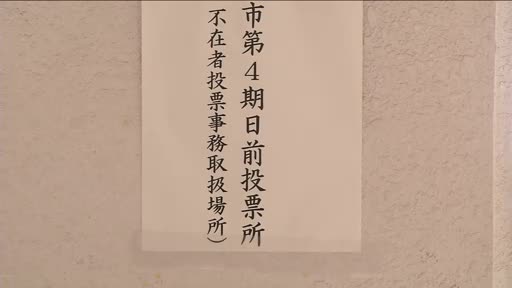 市第４期日前投票所
不在者投票事務取扱場所）